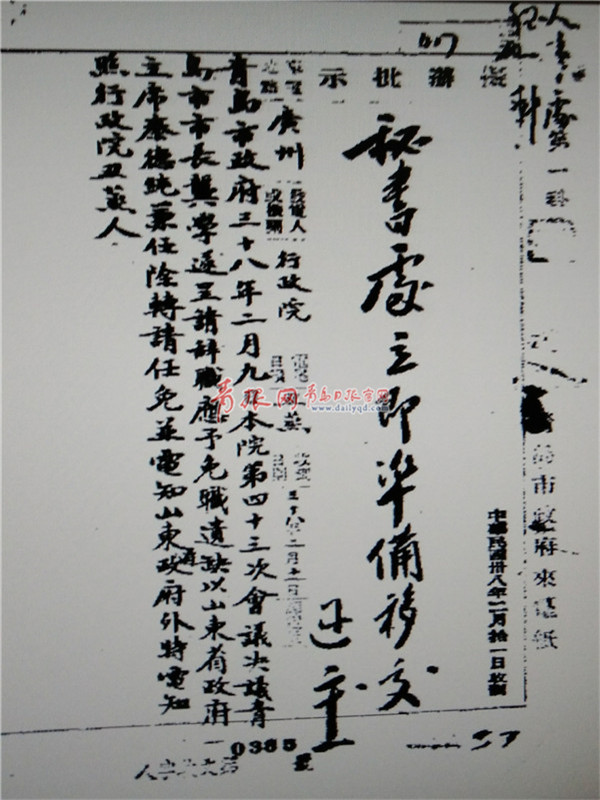 人事處第一科
擬辦批示
秘書處立即準備移交
市政府來電紙
中華民國卅八年二月拾一日收到
廣州
行政院
青島市政府三十八年二月九日本院第四十三次會議決議青
島市市長龔學遂呈請辭職應予免職遺缺以山東省政府
主席秦德純兼任除轉請任免並電知山東政府外特電知
照行政院丑蒸人
0385
青报网
青岛日报官网
www.dailyqd.com